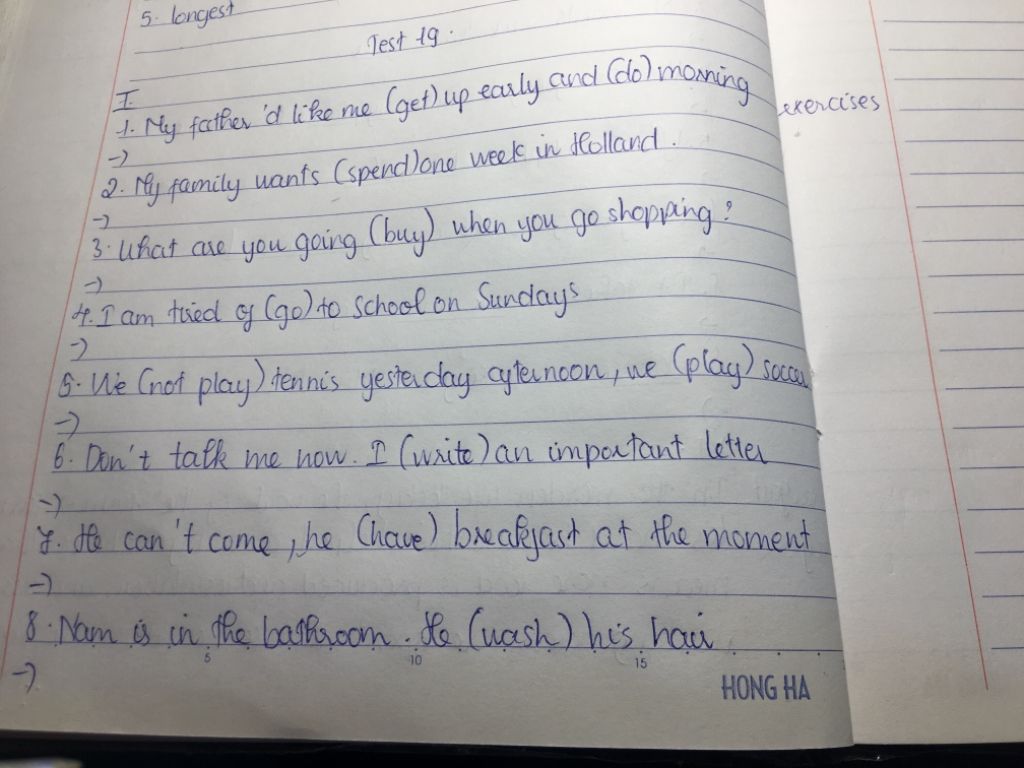 5. longest
Test 19.
I.
1. My father 'd like me (get) up early and (do) morning exercises
->
2. My family wants (spend) one week in Holland.
->
3. What are you going (buy) when you go shopping?
->
4. I am tired of (go) to school on Sundays
->
5. We (not play) tennis yesterday afternoon, we (play) soccer
->
6. Don't talk me now. I (write) an important letter
->
7. He can't come, he (have) breakfast at the moment
->
8. Nam is in the bathroom. He (wash) his hair
5 10 15
->
HONG HA